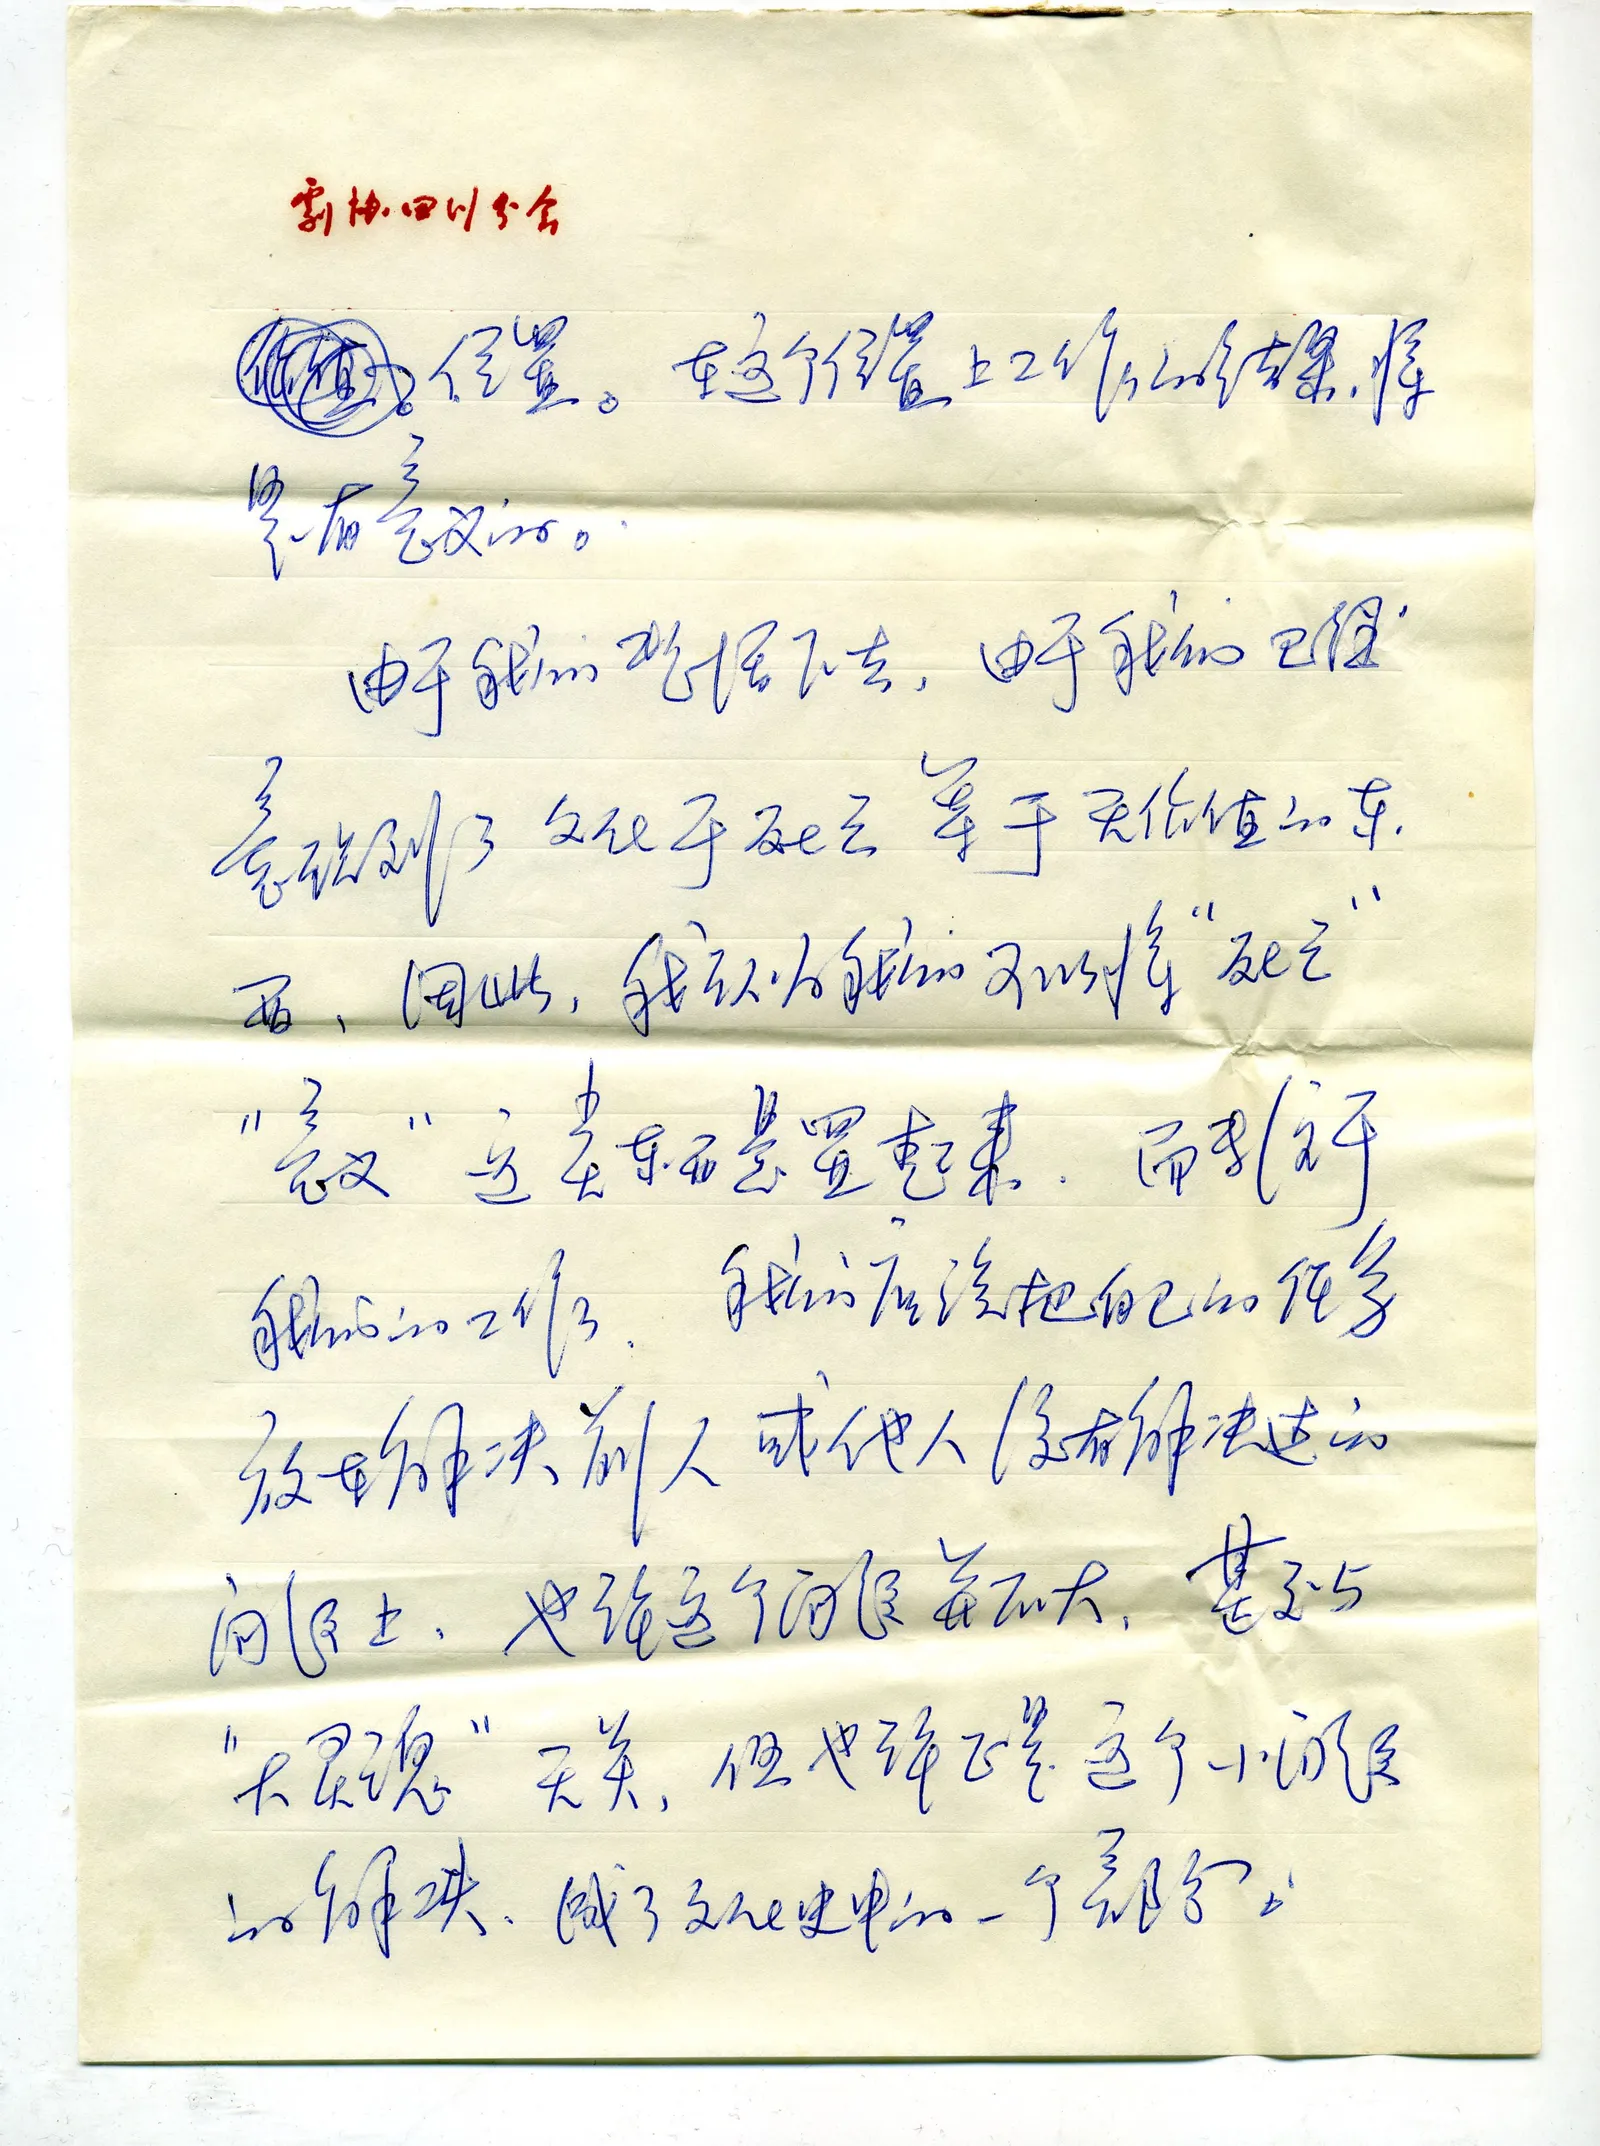 剧协四川分会
位置。在这个位置上工作的结果,将
是有意义的。
由于我们还要活下去,由于我们已经
意识到了文化于死亡等于无价值的东
西、因此,我认为我们可以将"死亡"
"意义"这类东西悬置起来.而专注于
我们的工作了.我们应该把自己的任务
放在解决前人或他人没有解决过的
问题上.也许这个问题并不大,甚至与
"大灵魂"无关,但也许正是这个小问题
的解决、成了文化史中的一个部分。